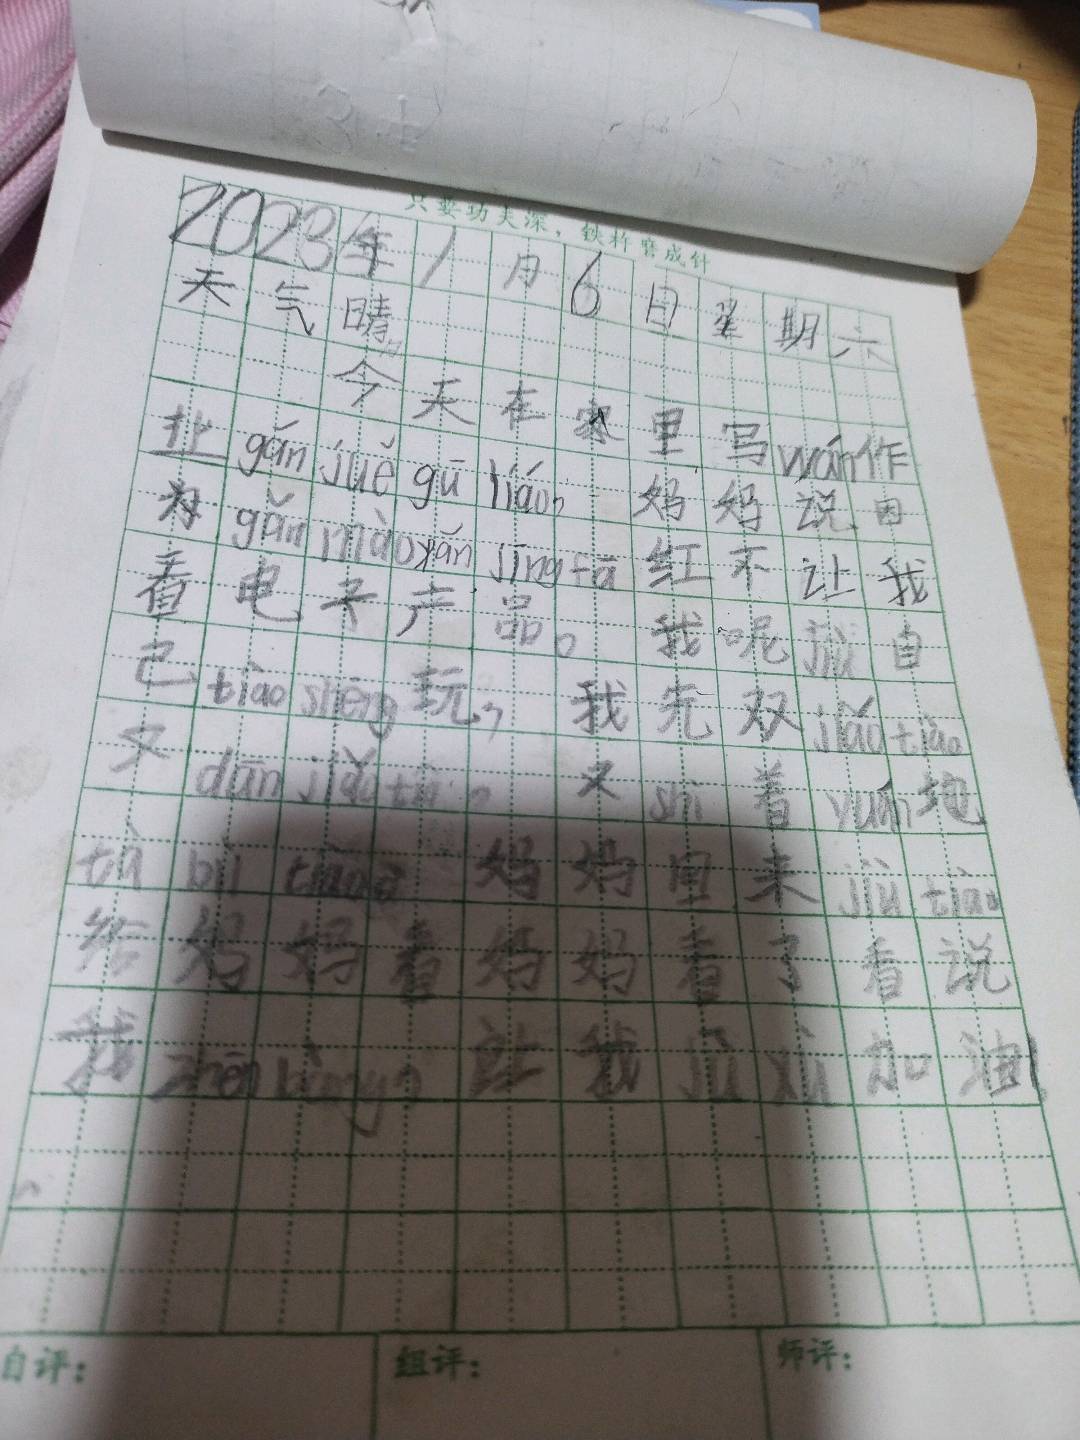 只要功夫深，铁杵磨成针
2023年1月6日星期六
天气晴
今天在家里写wán作
业gǎn juě gū liáo，妈妈说因
为gǎn mào yǎn jīng fā红不让我
看电子产品。我呢就自
己tiào shéng玩，我先双jiǎo tiào
又dān jiǎo tiào，又shì着yuán地
tà bù tiào。妈妈回来jiù tiào
给妈妈看妈妈看了看说
我zhēn bàng，让我jì xù加油！
自评：
组评：
师评：